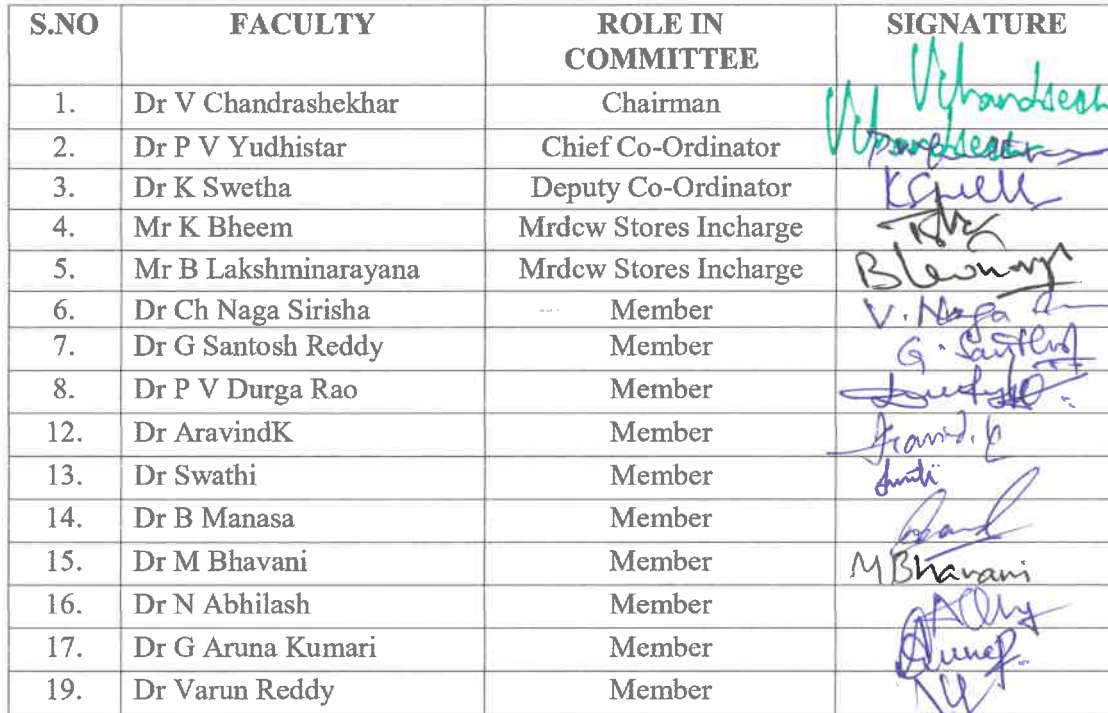 S.NO FACULTY ROLE IN COMMITTEE SIGNATURE
1. Dr V Chandrashekhar Chairman
2. Dr P V Yudhistar Chief Co-Ordinator
3. Dr K Swetha Deputy Co-Ordinator
4. Mr K Bheem Mrdcw Stores Incharge
5. Mr B Lakshminarayana Mrdcw Stores Incharge
6. Dr Ch Naga Sirisha Member V. Naga
7. Dr G Santosh Reddy Member G.
8. Dr P V Durga Rao Member
12. Dr AravindK Member
13. Dr Swathi Member
14. Dr B Manasa Member
15. Dr M Bhavani Member M Bhavani
16. Dr N Abhilash Member
17. Dr G Aruna Kumari Member
19. Dr Varun Reddy Member